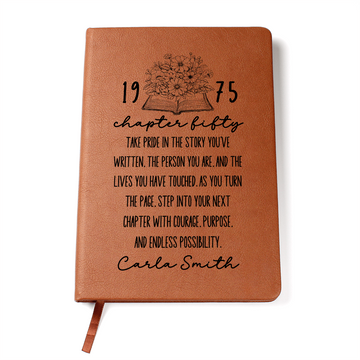 1975
chapter fifty
TAKE PRIDE IN THE STORY YOU'VE
WRITTEN, THE PERSON YOU ARE, AND THE
LIVES YOU HAVE TOUCHED. AS YOU TURN
THE PAGE, STEP INTO YOUR NEXT
CHAPTER WITH COURAGE, PURPOSE,
AND ENDLESS POSSIBILITY.
Carla Smith